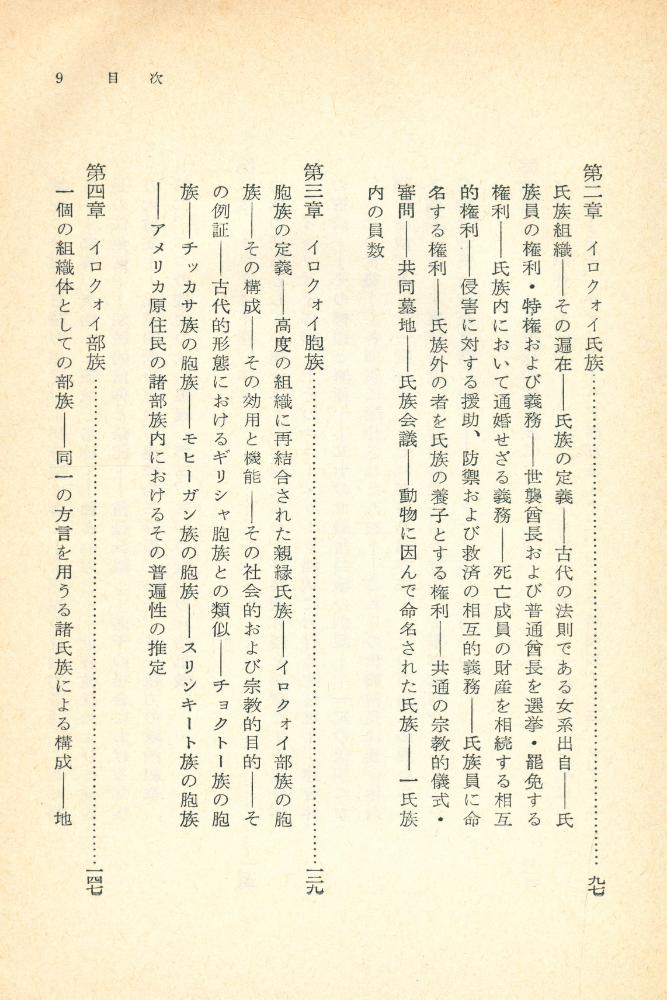 9 目次
第二章 イロクォイ氏族……………………………九七
氏族組織――その遍在――氏族の定義――古代の法則である女系出自――氏
族員の権利・特権および義務――世襲酋長および普通酋長を選挙・罷免する
権利――氏族内において通婚せざる義務――死亡成員の財産を相続する相互
的権利――侵害に対する援助、防禦および救済の相互的義務――氏族員に命
名する権利――氏族外の者を氏族の養子とする権利――共通の宗教的儀式・
審問――共同墓地――氏族会議――動物に因んで命名された氏族――一氏族
内の員数
第三章 イロクォイ胞族……………………………一三九
胞族の定義――高度の組織に再結合された親縁氏族――イロクォイ部族の胞
族――その構成――その効用と機能――その社会的および宗教的目的――そ
の例証――古代的形態におけるギリシャ胞族との類似――チョクトー族の胞
族――チッカサ族の胞族――モヒーガン族の胞族――スリンキート族の胞族
――アメリカ原住民の諸部族内におけるその普遍性の推定
第四章 イロクォイ部族……………………………一四七
一個の組織体としての部族――同一の方言を用うる諸氏族による構成――地